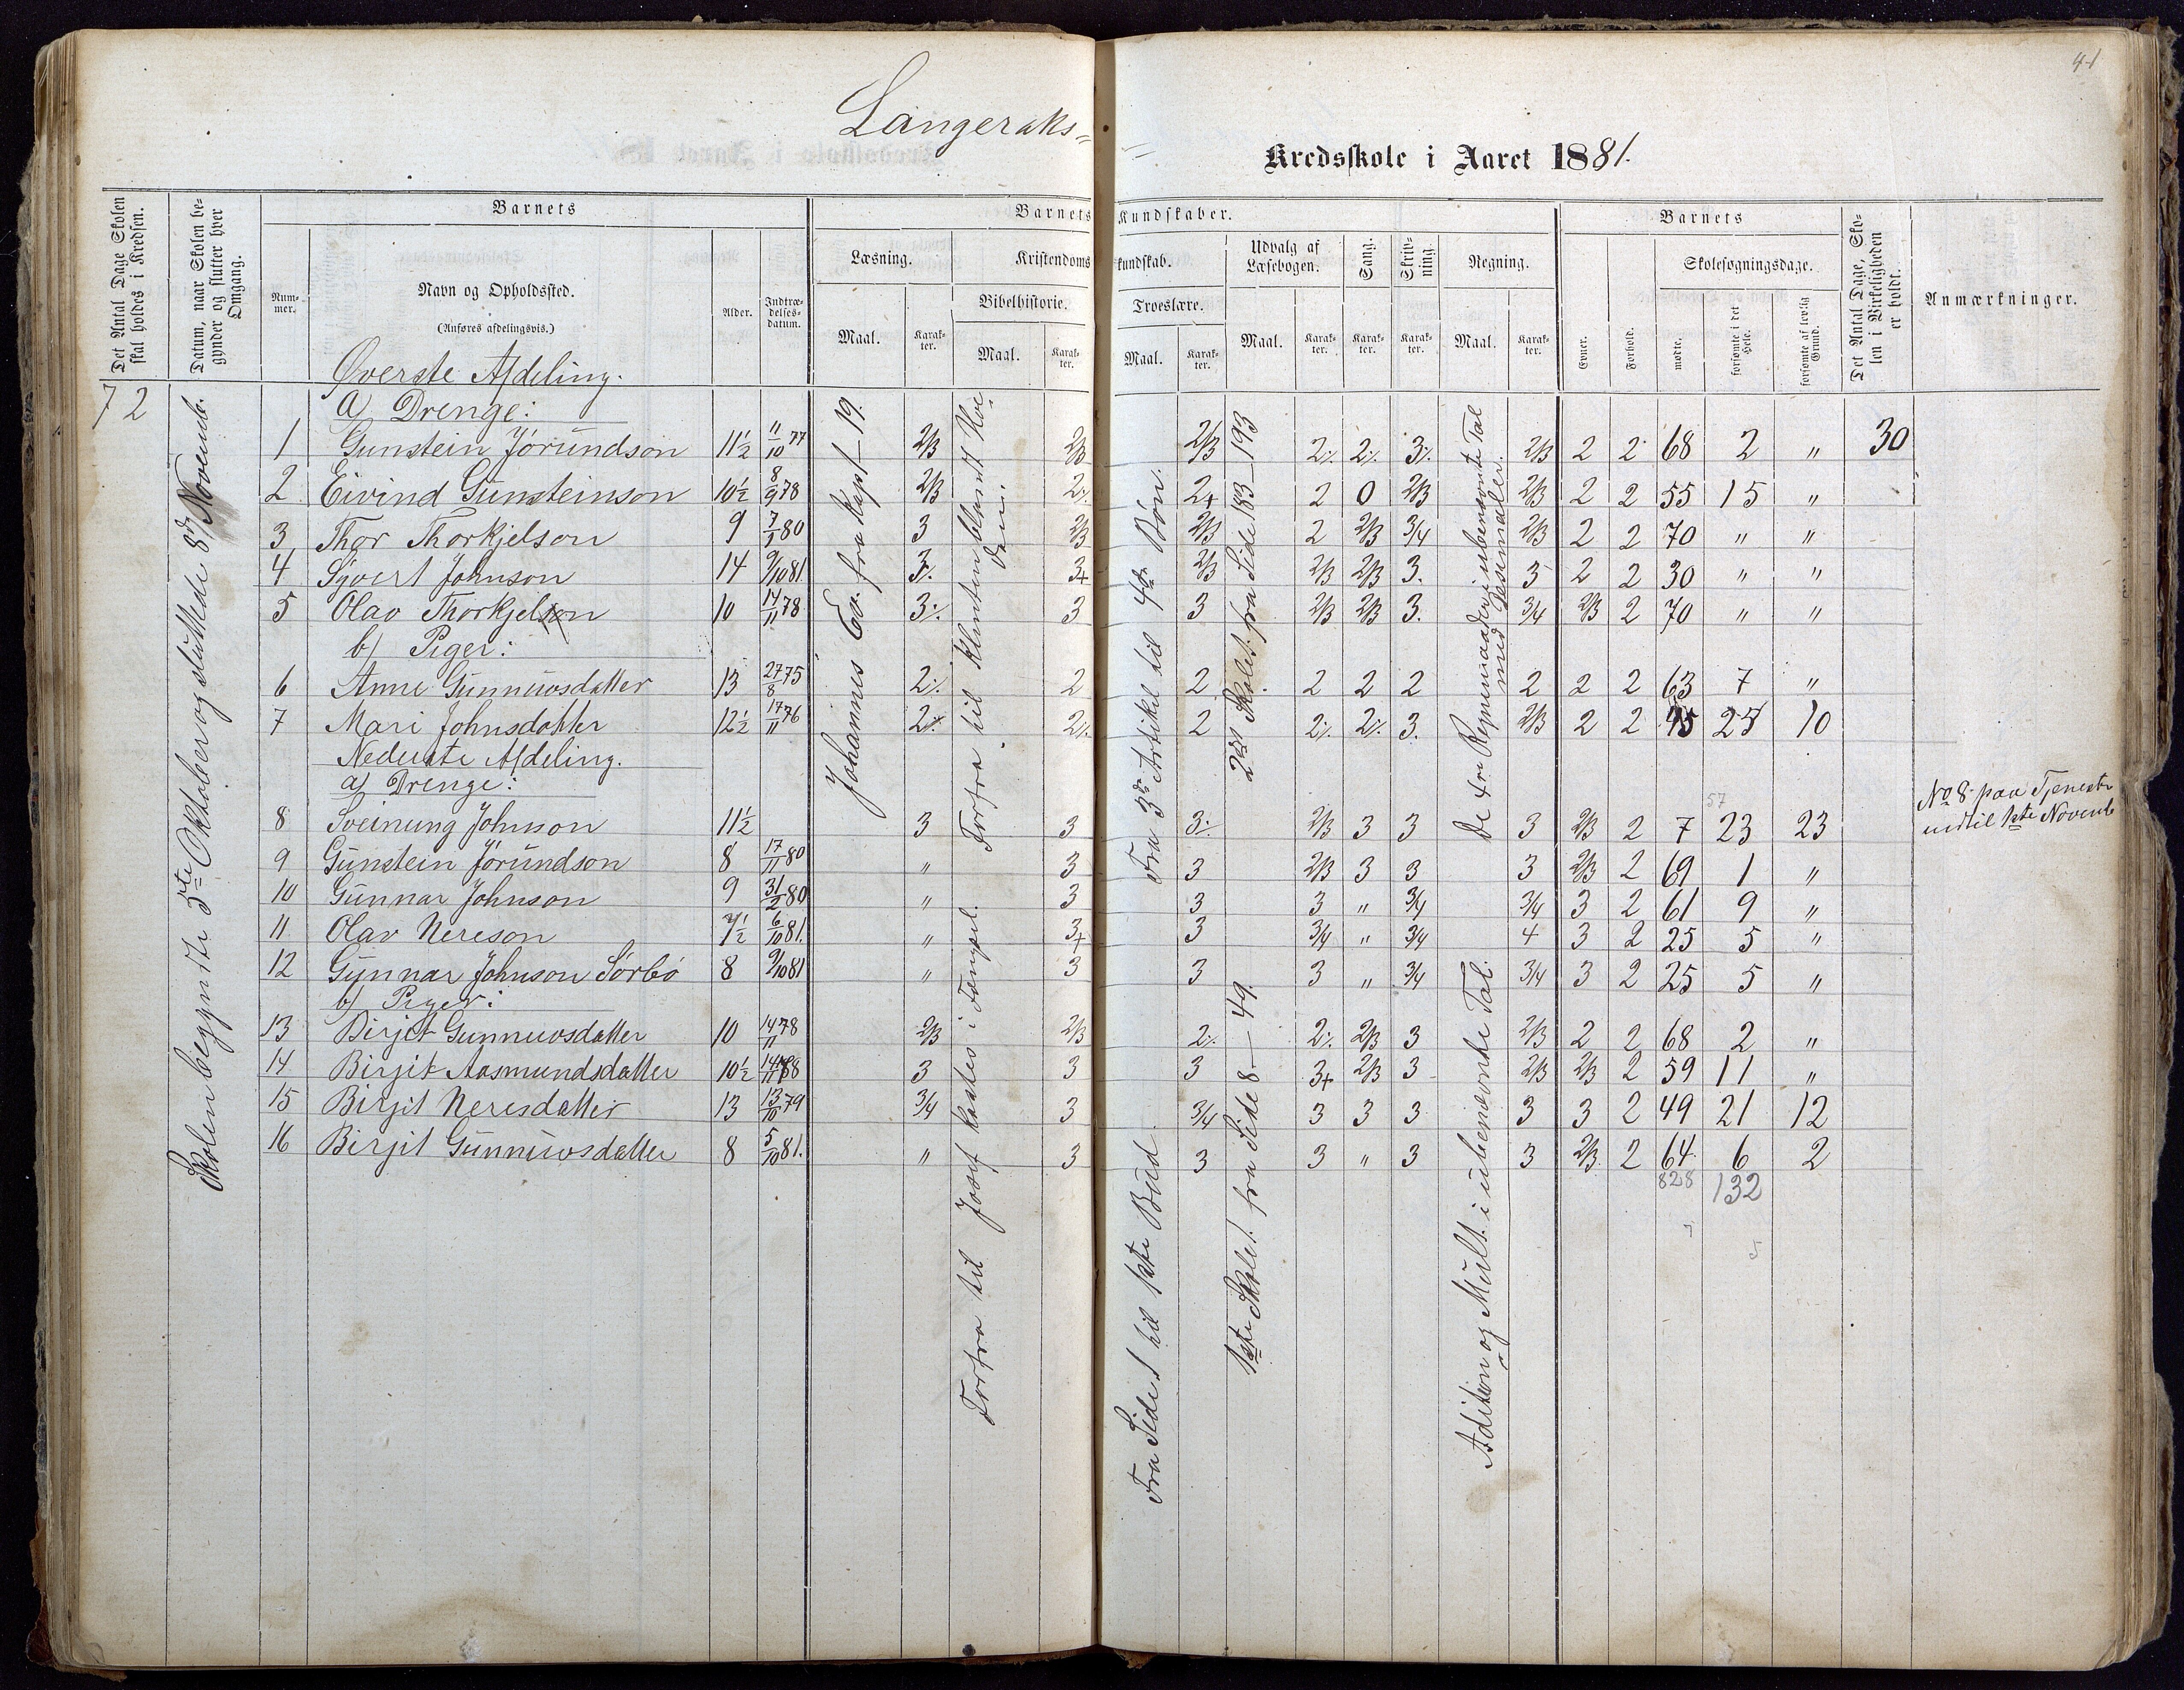 41
Langeraks-
Kredsskole i Aaret 1881.
Det Antal Dage Skolen skal holdes i Kredsen.
Datum, naar Skolen begynder og slutter hver Omgang.
Barnets
Barnets Kundskaber.
Barnets
Det Antal Dage, Skolen i Virkeligheden er holdt.
Anmærkninger.
Nummer.
Navn og Opholdssted.
(Anføres afdelingsvis.)
Alder.
Indtrædelsesdatum.
Læsning.
Kristendomskundskab.
Udvalg af Læsebogen.
Sang.
Skrivning.
Regning.
Evner.
Forhold.
Skolesøgningsdage.
Bibelhistorie.
Troeslære.
Maal.
Karakter.
Maal.
Karakter.
Maal.
Karakter.
Maal.
Karakter.
Karakter.
Karakter.
Maal.
Karakter.
mødte.
forsømte i det Hele.
forsømte af lovlig Grund.
72
Skolen begyndte 5te Oktober og sluttede 8de Novemb.
Øverste Afdeling.
a) Drenge:
1 Gunstein Jørundson 11½ 11/10 77 2/3 2/3 2/3 2/. 2/. 3/. 2/3 2 2 68 2 " 30
2 Eivind Gunsteinson 10½ 8/9 78 2/3 2/. 2+ 2 0 2/3 2/3 2 2 55 15 "
3 Thor Thorkjelson 9 7/1 80 3 2/3 2/3 2 2/3 3/4 2/3 2 2 70 " "
4 Syvert Johnson 14 9/10 81. 3/. 3+ 2/3 2/3 2/3 3. 3 2 2 30 " "
5 Olav Thorkjelson 10 14/11 78 3/. 3 3 2/3 2/3 3. 3/4 2/3 2 70 " "
b) Piger:
6 Anne Gunnuvsdatter 13 27/8 75 2/. 2 2 2 2 2 2 2 2 63 7 "
7 Mari Johnsdatter 12½ 17/11 76 2/. 2/. 2 2/. 2/. 3. 2/3 2 2 45 25 10
Nederste Afdeling.
a) Drenge:
57
8 Sveinung Johnson 11½ 3 3 3/. 2/3 3 3 3 2/3 2 7 23 23
No 8 paa Tjeneste
indtil 1ste Novemb
9 Gunstein Jørundson 8 17/11 80 " 3 3 2/3 3 3 3 2/3 2 69 1 "
10 Gunnar Johnson 9 31/2 80 " 3 3 3 " 3/4 3/4 3 2 61 9 "
11 Olav Nereson 7½ 6/10 81. " 3+ 3 3/4 " 3/4 4 3 2 25 5 "
12 Gunnar Johnson Sørbø 8 9/10 81 " 3 3 3 " 3/4 3/4 3 2 25 5 "
b) Piger:
13 Birjit Gunnuvsdatter 10 14/11 78 2/3 2/3 2/. 2/. 2/3 3 2/3 2 2 68 2 "
14 Birgit Aasmundsdatter 10½ 14/11 3 3 3 3+ 2/3 3 2/3 2/3 2 59 11 "
15 Birgit Neresdatter 13 13/10 79 3/4 3 3/4 3 3 3 3 3 2 49 21 12
16 Birgit Gunnuvsdatter 8 5/10 81. " 3 3 3 " 3 3 2/3 2 64 6 2
828 132
Johannes Ev. fra Kapt – 19.
Forfra til Josef kastes i Fængsel.
Fra 3die Artikel til 4de Bøn.
Fra Side 1 til 1ste Bud.
2det Skolet. fra Side 183–193
1ste Skolet. fra Side 8 – 49.
De 4re Regnemaader i ubenævnte Tal med Desimaler.
Adition og Mult. i ubenævnte Tal.